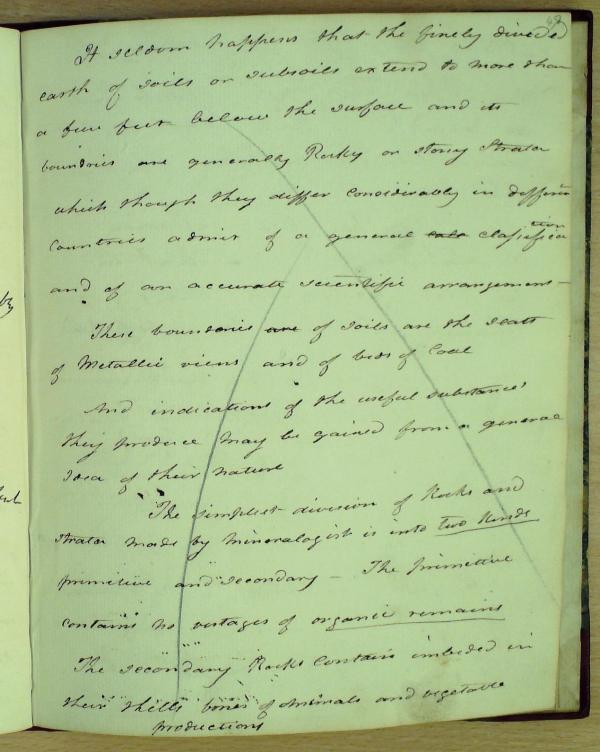 49
It seldom happens that the finely divided
earth of soils or subsoils extend to more than
a few feet below the surface and its
boundries are generally Rocky or stony Strata
which though they differ considerably in different
Countries admit of a general clasifica
tion
and of an accurate scientific arrangement -
These boundaries are of soils are the seats
of Metallic viens and of beds of Coal
And indications of the useful substances
they produce may be gained from a general
Idea of their nature
The simplest division of Rocks and
strata made by Mineralogist is into two Kinds
primitive and secondary - The primitive
contains no vestages of organic remains
The secondary Rocks Contain imbeded in
their shells bones of Animals and vegetable
productions